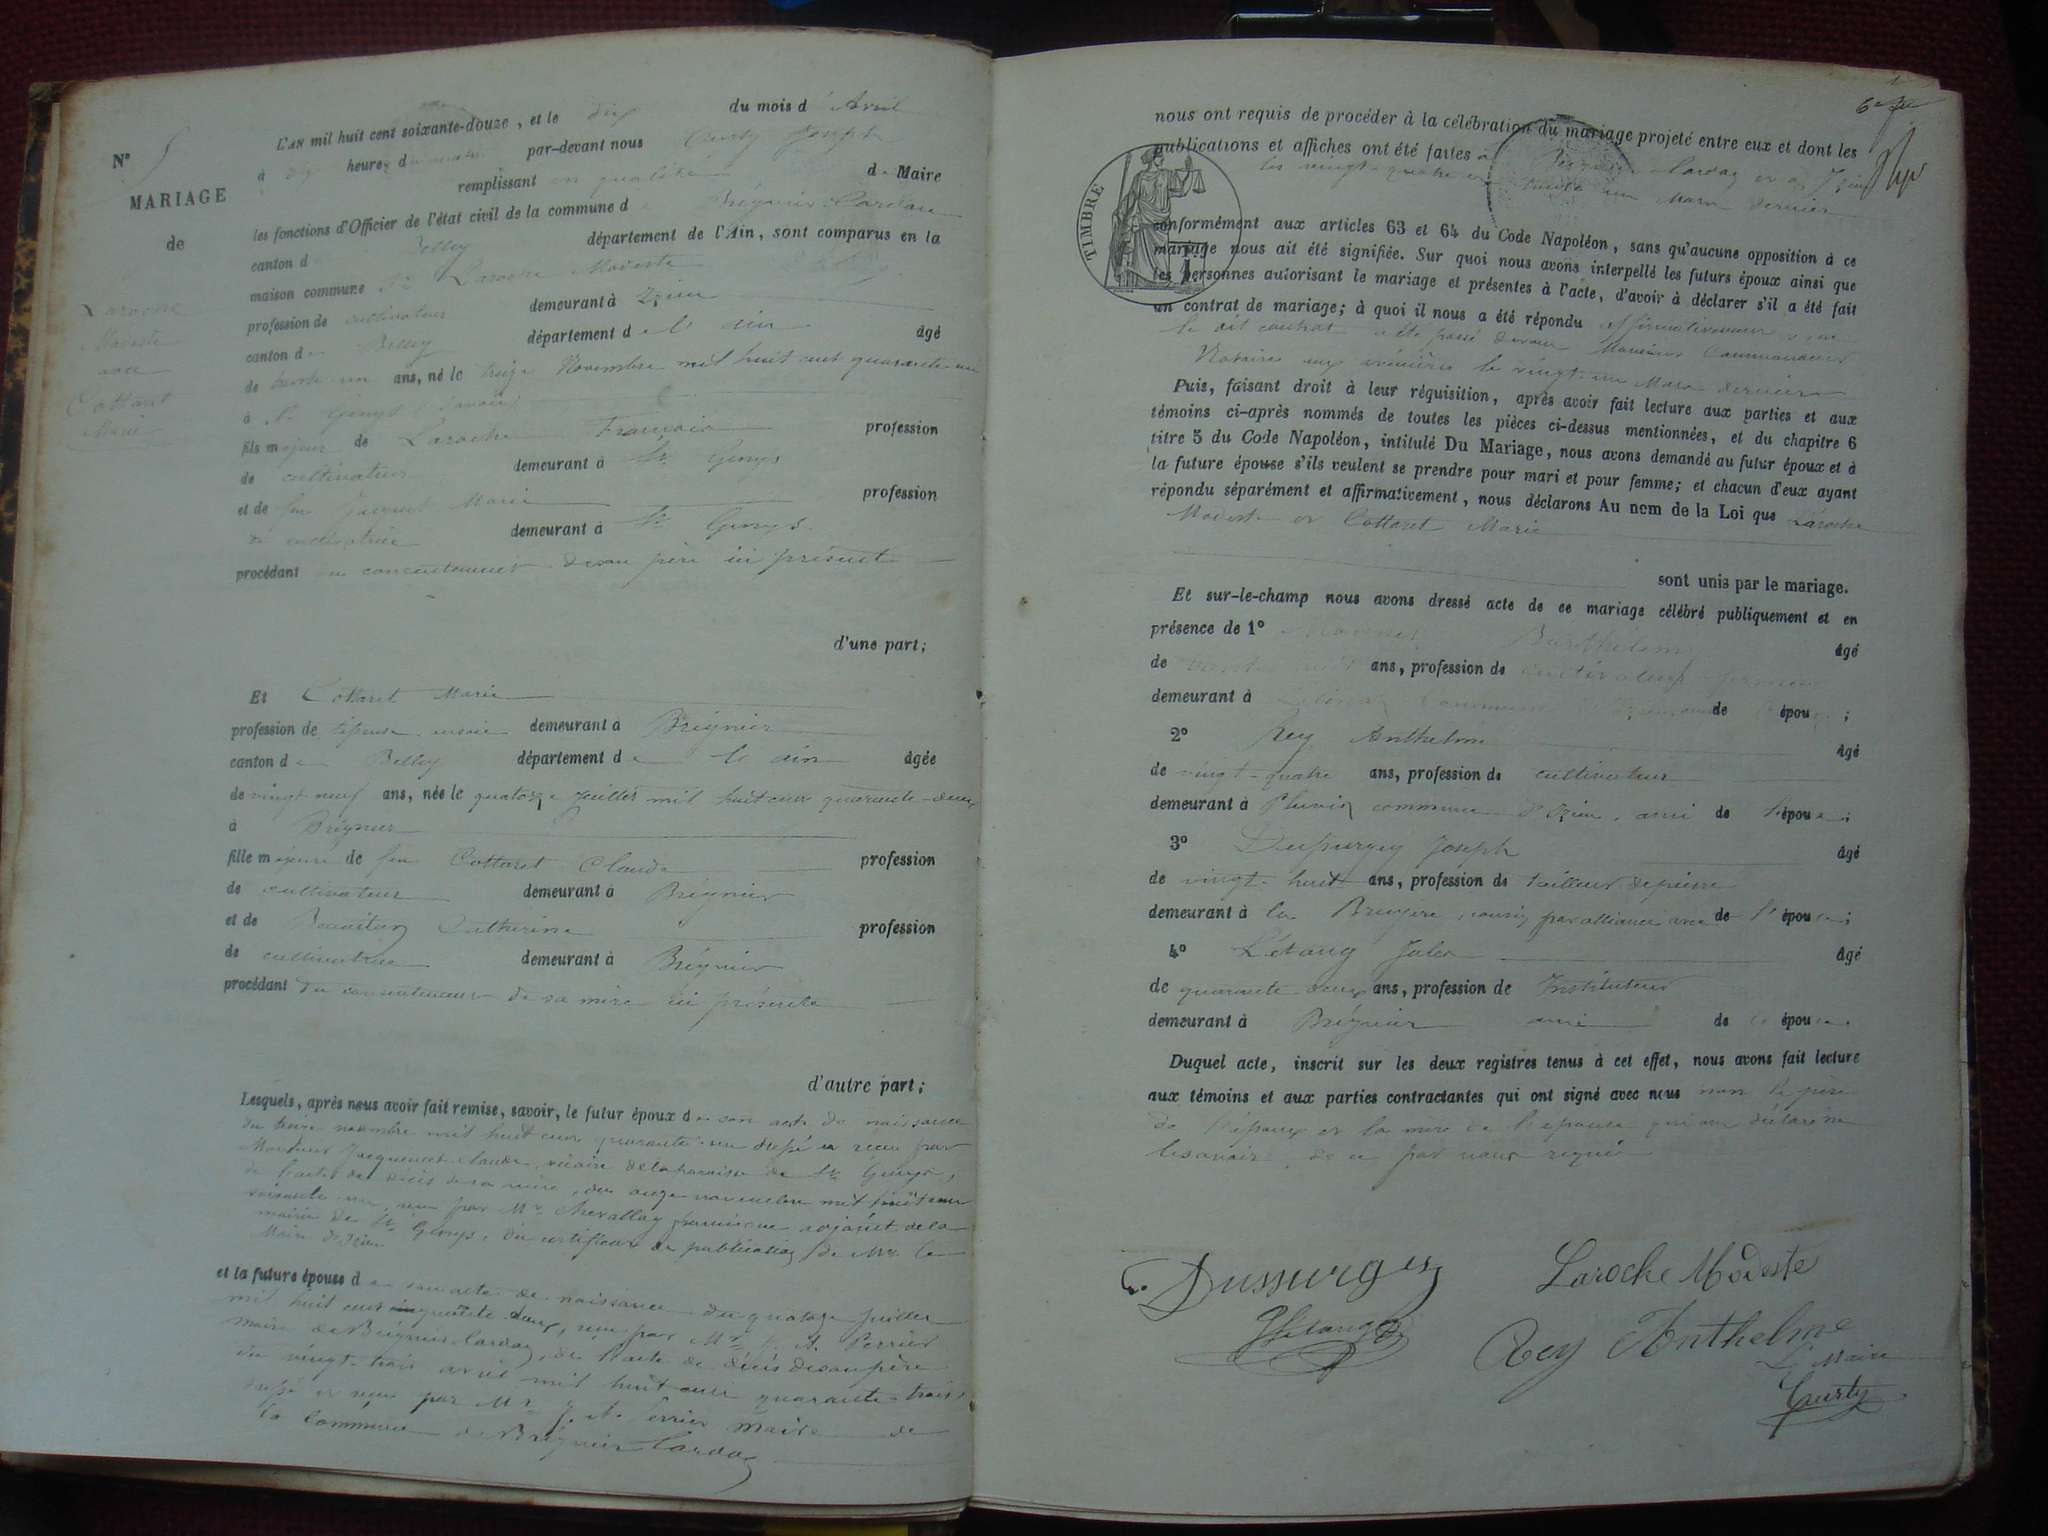 N° 5
MARIAGE
de
Laroche
Modeste
avec
Cottaret
Marie
L'AN mil huit cent soixante-douze, et le dix du mois d'Avril
à dix heures d par-devant nous Curty Joseph
remplissant en qualité de Maire
les fonctions d'Officier de l'état civil de la commune d Brégnier-Cordon
canton d Belley département de l'Ain, sont comparus en la
maison commune Sr Laroche Modeste
profession de cultivateur demeurant à Izieu
canton de Belley département de l'ain âgé
de trente un ans, né le treize Novembre mil huit cent quarante-un
à St Genys (Savoie)
fils majeur de Laroche Francois profession
de cultivateur demeurant à St Genys
et de feu Jacquet Marie profession
de cultivatrice demeurant à St Genys.
procédant du consentement de son père ici présent
d'une part;
Et Cottaret Marie
profession de demeurant à Brégnier
canton de Belley département de l'ain âgée
de vingt neuf ans, née le quatorze juillet mil huit cent quarante-deux
à Brégnier
fille majeure de feu Cottaret Claude profession
de cultivateur demeurant à Brégnier
et de Catherine profession
de cultivatrice demeurant à Brégnier
procédant du consentement de sa mère ici présente
d'autre part;
Lesquels, après nous avoir fait remise, savoir, le futur époux de son acte de naissance
du treize novembre mil huit cent quarante-un et reçu par
Monsieur Jacquemet Claude, vicaire de la paroisse de St Genys,
de l'acte de décès de sa mère, du onze novembre mil huit cent
soixante reçu par Mr Chevallay francisque adjoint de la
mairie de St Genys, du certificat de publication de Mr le
Maire d'Izieu
et la future épouse de son acte de naissance du quatorze juillet
mil huit cent quarante deux, reçu par Mr J. N. Perrier
maire de Brégnier Cordon, de l'acte de décès de son père
du vingt-trois avril mil huit cent quarante-trois,
et reçu par Mr J. N. Perrier maire de
la commune de Brégnier Cordon
nous ont requis de procéder à la célébration du mariage projeté entre eux et dont les
publications et affiches ont été faites à Brégnier-Cordon et à Izieu
les vingt-quatre et trente un Mars dernier
TIMBRE
conformément aux articles 63 et 64 du Code Napoléon, sans qu'aucune opposition à ce
mariage nous ait été signifiée. Sur quoi nous avons interpellé les futurs époux ainsi que
les personnes autorisant le mariage et présentes à l'acte, d'avoir à déclarer s'il a été fait
un contrat de mariage; à quoi il nous a été répondu affirmativement, que
le dit contrat a été passé devant Monsieur
Notaire aux avenières le vingt-un Mars dernier
Puis, faisant droit à leur réquisition, après avoir fait lecture aux parties et aux
témoins ci-après nommés de toutes les pièces ci-dessus mentionnées, et du chapitre 6
titre 5 du Code Napoléon, intitulé Du Mariage, nous avons demandé au futur époux et à
la future épouse s'ils veulent se prendre pour mari et pour femme; et chacun d'eux ayant
répondu séparément et affirmativement, nous déclarons Au nom de la Loi que Laroche
Modeste et Cottaret Marie
sont unis par le mariage.
Et sur-le-champ nous avons dressé acte de ce mariage célébré publiquement et en
présence de 1° Barthélemy âgé
de ans, profession de cultivateur fermier
demeurant à commune d'Izieu de épou ;
2° Rey Anthelme âgé
de vingt-quatre ans, profession de cultivateur
demeurant à commune d'Izieu, ami de l'épou ;
3° Dussurgey Joseph âgé
de vingt-huit ans, profession de tailleur de pierre
demeurant à la Bruyère, cousin par alliance de l'épou ;
4° Létang Jules âgé
de quarante-deux ans, profession de Instituteur
demeurant à Brégnier ami de l'épou
Duquel acte, inscrit sur les deux registres tenus à cet effet, nous avons fait lecture
aux témoins et aux parties contractantes qui ont signé avec nous non le père
de l'époux et la mère de l'épouse qui ont déclaré ne
le savoir, de ce par nous requis
Dussurgey Laroche Modeste
JLétang Rey Anthelme
Le Maire
Curty